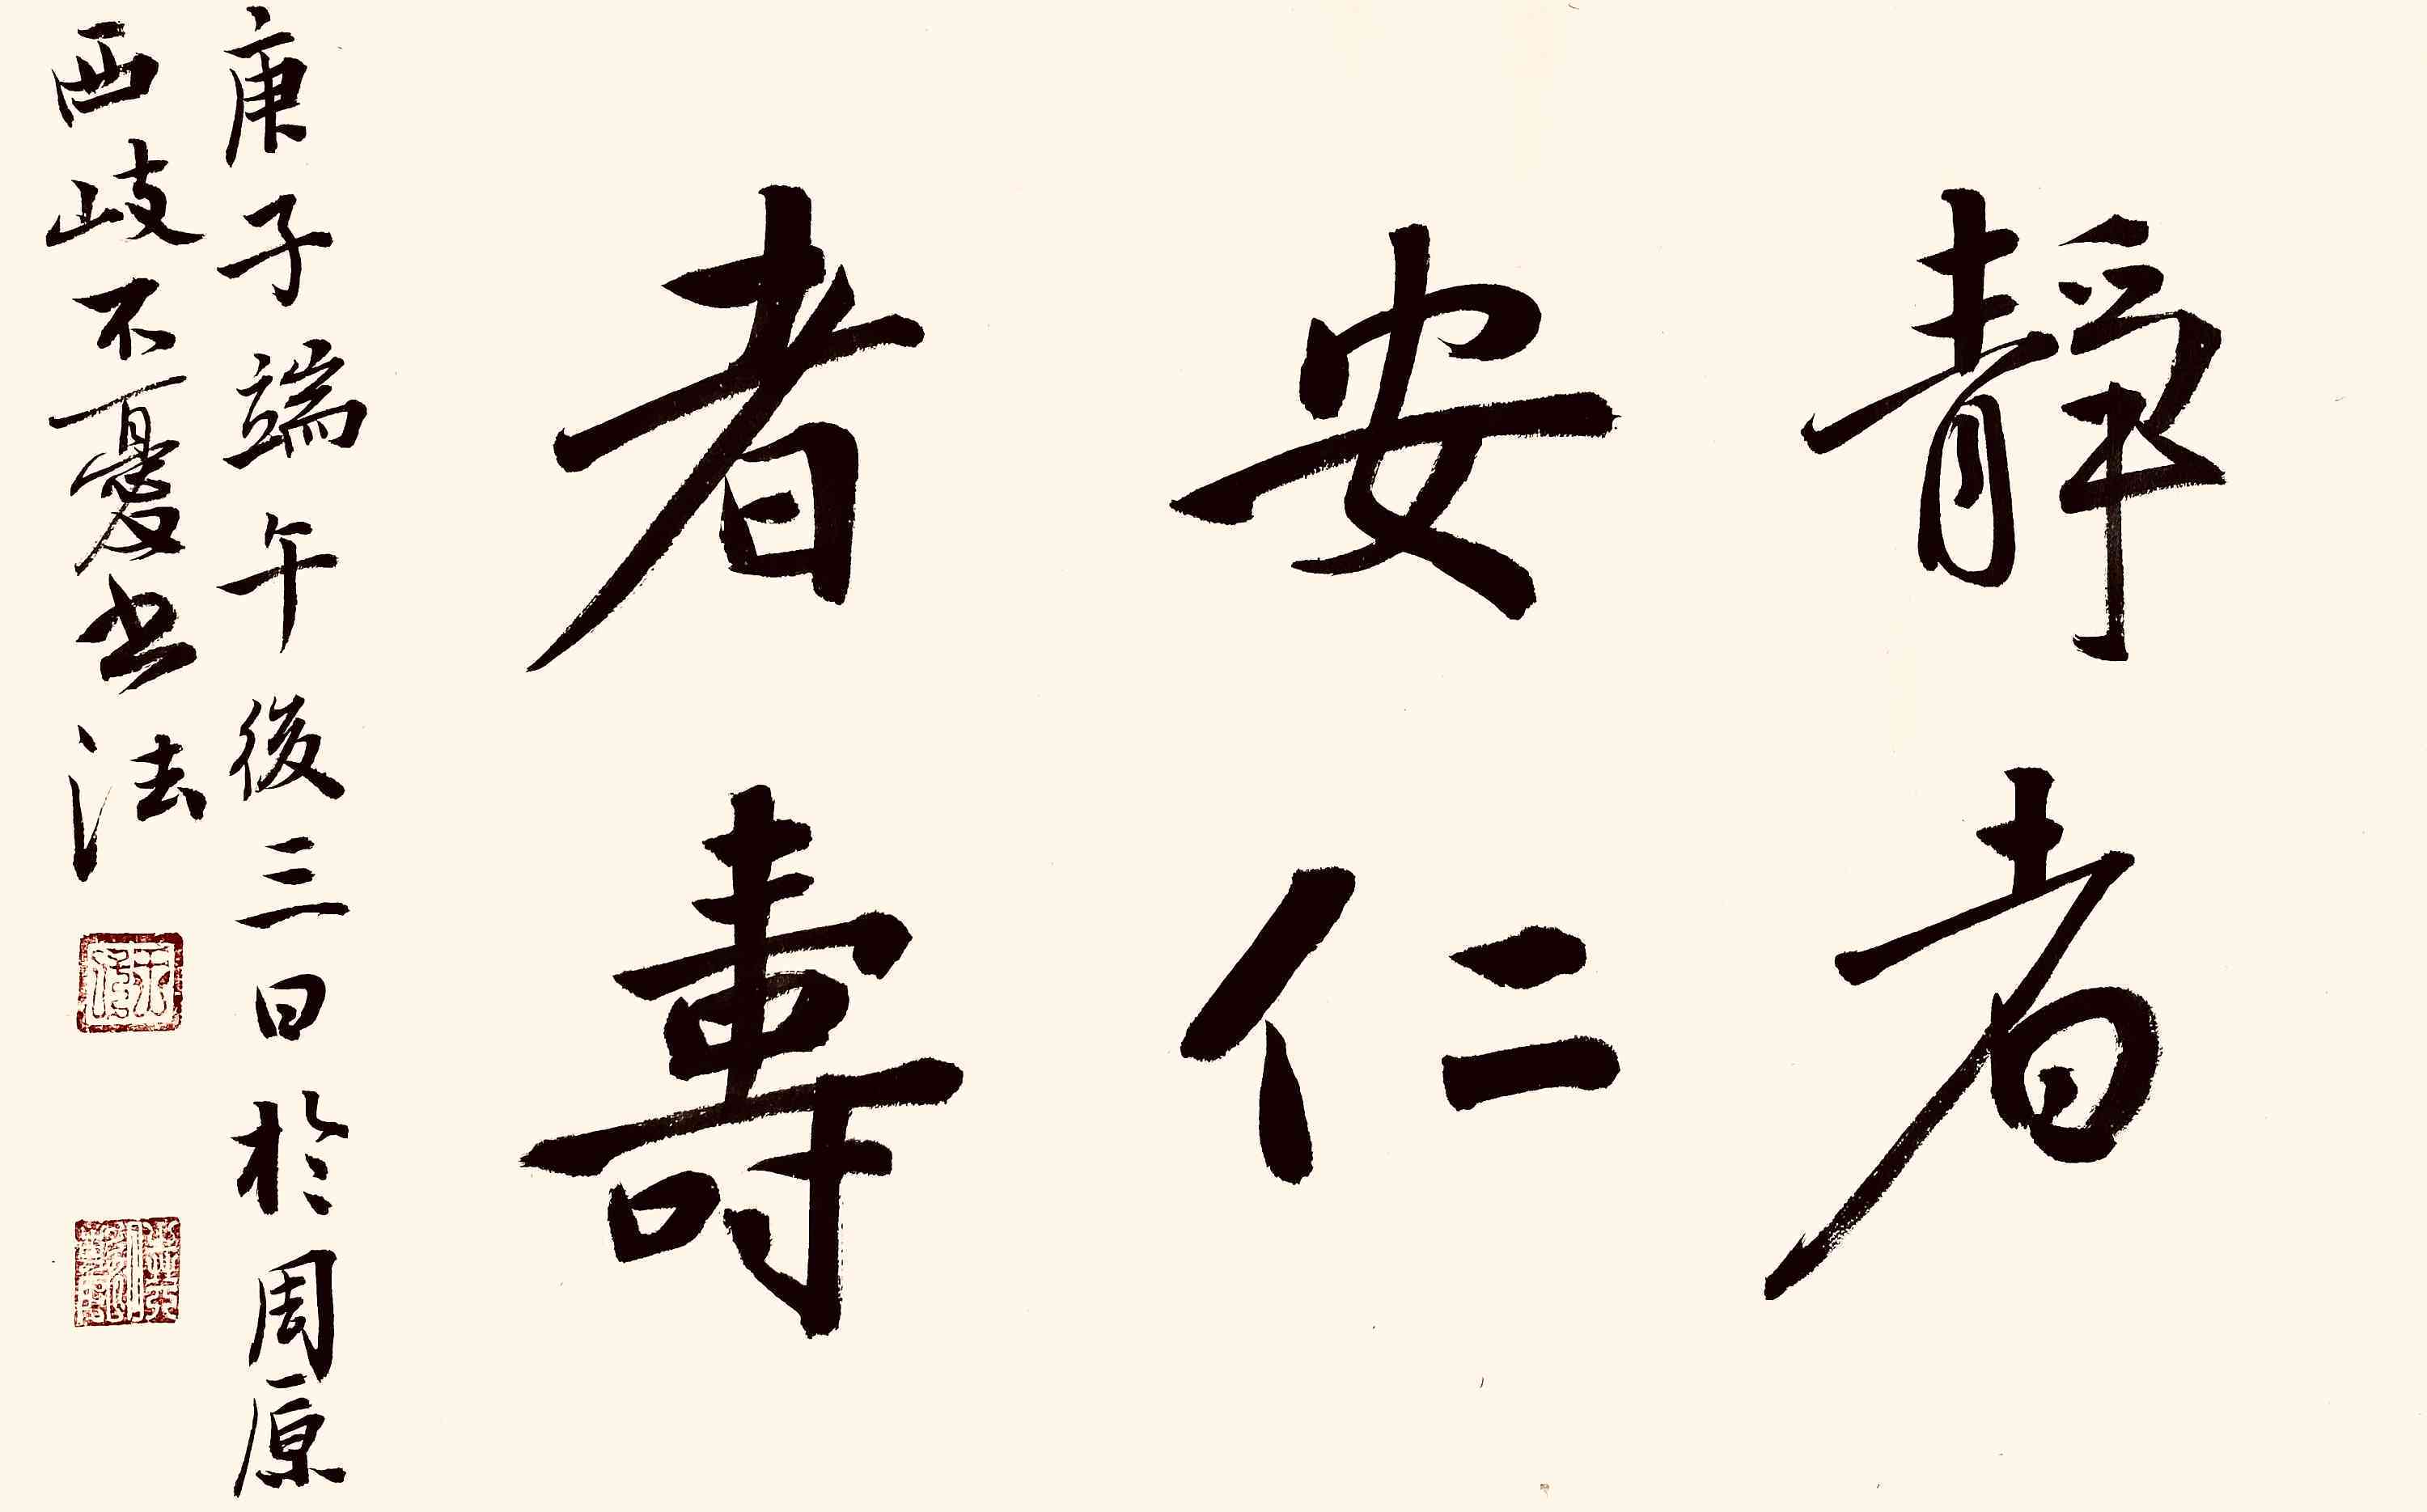 靜者
安仁
者壽
庚子端午後三日於周原
西岐不憂书法